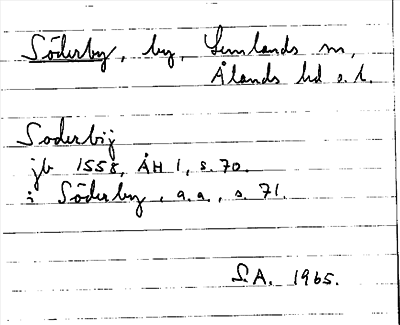 Söderby, by, Lemlands sn,
Ålands hd o. l.
Soderbij
jb 1558, ÅH 1, s. 70.
i Söderby, a.a., s. 71.
S.A. 1965.